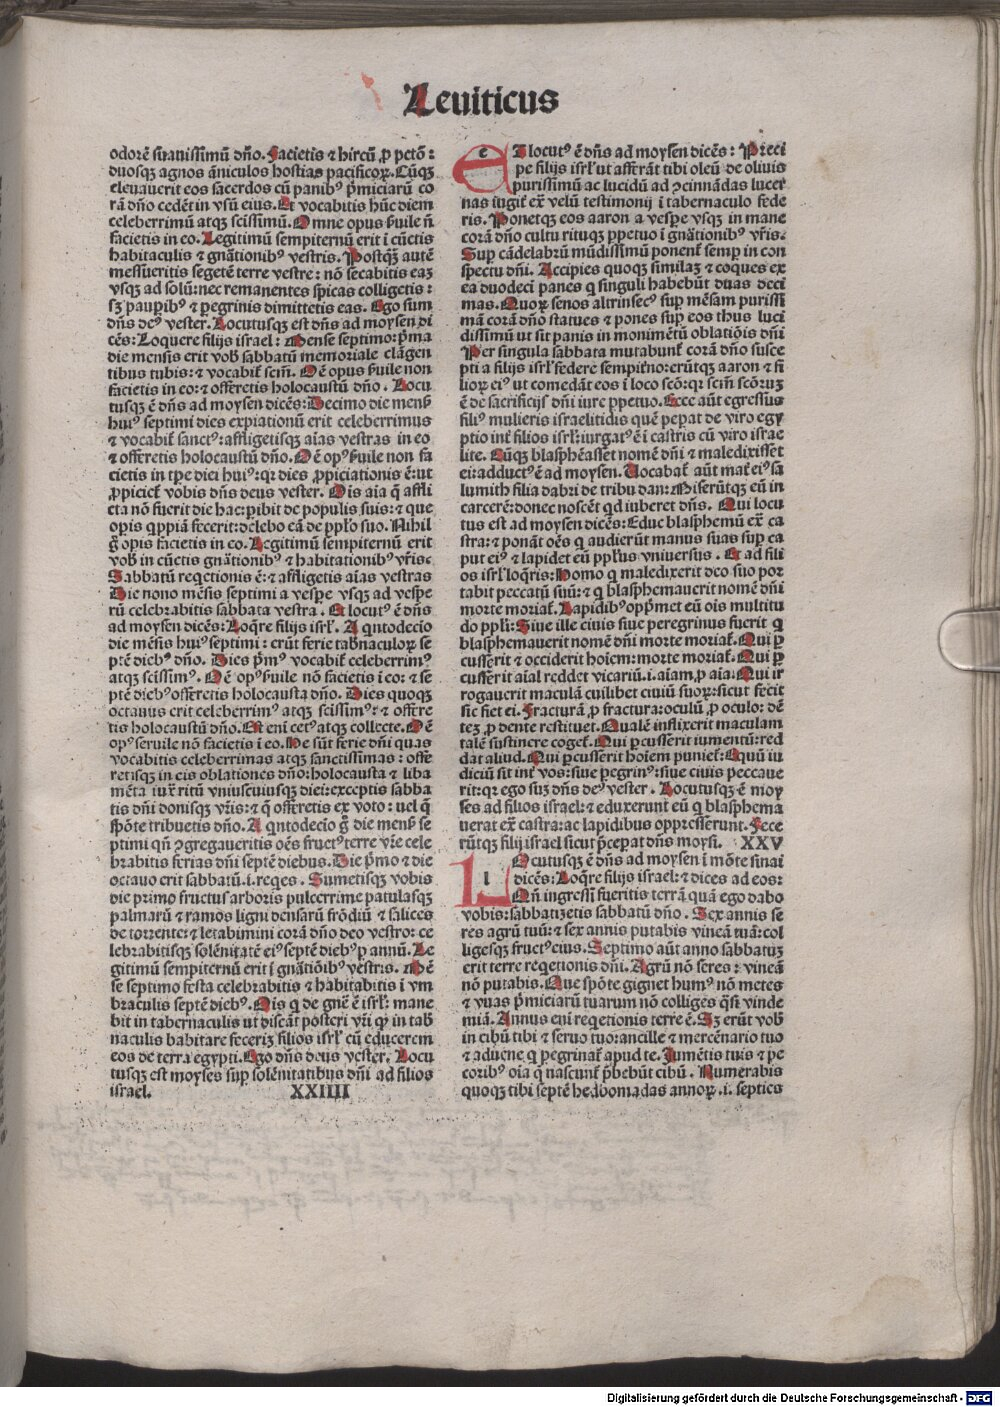 Leuiticus
odorē suauissimū dño. Facietis ⁊ hircū ꝓ pctō:
duosqꝫ agnos āniculos hostias pacificoꝝ. Cūqꝫ
eleuauerit eos sacerdos cū panibꝰ p̄miciarū co
rā dño cedēt in vsū eius. Et vocabitis hūc diem
celeberrimū atqꝫ scissimū. Omne opus ẜuile ñ
facietis in eo. Legitimū sempiternū erit ī cūctis
habitaculis ⁊ gnātionibꝰ vestris. Postqꝫ autē
messueritis segetē terre vestre: nō secabitis eaꝫ
vsqꝫ ad solū: nec remanentes spicas colligetis:
sꝫ pauꝑibꝰ ⁊ ꝑegrinis dimittetis eas. Ego sum
dñs deꝰ vester. Locutusqꝫ est dñs ad moysen di
cēs: Loquere filijs israel: Mense septimo: p̄ma
die mensis erit vob̄ sabbatū memoriale clāgen
tibus tubis: ⁊ vocabit̉ scm̄. Oē opus ẜuile non
facietis in eo: ⁊ offeretis holocaustū dño. Locu
tusqꝫ ē dñs ad moysen dicēs: Decimo die menß
huiꝰ septimi dies expiationū erit celeberrimus
⁊ vocabit̉ sanctꝰ: affligetisqꝫ aīas vestras in eo
⁊ offeretis holocaustū dño. Oē opꝰ ẜuile non fa
cietis in tꝑe diei huiꝰ: qꝛ dies ꝓpiciationis ē: ut
ꝓpiciet̉ vobis dñs deus vester. Ois aīa q̄ affli
cta nō fuerit die hac: ꝑibit de populis suis: ⁊ que
opis qppiā fecerit: delebo eā de ppło suo. Nihil
g̊ opis facietis in eo. Legitimū sempiternū erit
vob̄ in cūctis gnātionibꝰ ⁊ habitationibꝰ vr̄is.
Sabbatū reqetionis ē: ⁊ affligetis aīas vestras
Die nono mēsis septimi a vespe vsqꝫ ad vespe
rū celebrabitis sabbata vestra. Et locutꝰ ē dñs
ad moysen dicēs: Loqr̄e filijs isrł. A qntodecio
die mēsis huiꝰ septimi: erūt ferie tab̄naculoꝝ se
ptē diebꝰ dño. Dies p̄mꝰ vocabit̉ celeberrimꝰ
atqꝫ scissimꝰ. Oē opꝰ ẜuile nō facietis ī eo: ⁊ se
ptē diebꝰ offeretis holocausta dño. Dies quoqꝫ
octauus erit celeberrimꝰ atqꝫ scissimꝰ: ⁊ offere
tis holocaustū dño. Est enī cetꝰ atqꝫ collecte. Oē
opꝰ seruile nō facietis ī eo. He sūt ferie dñi quas
vocabitis celeberrimas atqꝫ sanctissimas: offe
retisqꝫ in eis oblationes dño: holocausta ⁊ liba
mēta iux̄ ritū vniuscuiusqꝫ diei: exceptis sabba
tis dñi donisqꝫ vr̄is: ⁊ q̄ offeretis ex voto: uel q̄
spōte tribuetis dño. A qntodecio g̊ die menß se
ptimi qñ ꝯgregaueritis oēs fructꝰ terre vr̄e cele
brabitis ferias dñi septē diebus. Die p̄mo ⁊ die
octauo erit sabbatū .i. reqes. Sumetisqꝫ vobis
die primo fructus arboris pulcerrime patulasqꝫ
palmarū ⁊ ramos ligni densarū frōdiū ⁊ salices
de torrente: ⁊ letabimini corā dño deo vestro: ce
lebrabitisqꝫ solēnitatē eiꝰ septē diebꝰ ꝑ annū. Le
gitimū sempiternū erit ī gnātiōibꝰ vestris. Mē
se septimo festa celebrabitis ⁊ habitabitis ī vm
braculis septē diebꝰ. Ois q de gnē ē isrł: mane
bit in tabernaculis ut discāt posteri vr̄i qꝙ in tab̄
naculis habitare feceriꝫ filios isrł cū educerem
eos de terra egypti. Ego dñs deus vester. Locu
tusqꝫ est moyses suꝑ solēnitatibus dñi ad filios
israel. XXIIII
e
Et locutꝰ ē dñs ad moysen dicēs: Preci
pe filijs isrł ut afferāt tibi oleū de oliuis
purissimū ac lucidū ad ꝯcinnādas lucer
nas iugit̉ ex̄ velū testimonij ī tabernaculo fede
ris. Ponetqꝫ eos aaron a vespe vsqꝫ in mane
corā dño cultu rituqꝫ ꝑpetuo ī gnātionibꝰ vr̄is.
Suꝑ cādelabrū mūdissimū ponent̉ semꝑ in con
spectu dñi. Accipies quoqꝫ similaꝫ ⁊ coques ex
ea duodecī panes q singuli habebūt duas deci
mas. Quoꝝ senos altrinsecꝰ suꝑ mēsam purissi
mā corā dño statues ⁊ pones suꝑ eos thus luci
dissimū ut sit panis in monimētū oblatiōis dñi
Per singula sabbata mutabunt̉ corā dño susce
pti a filijs isrł federe sempit̉no: erūtqꝫ aaron ⁊ fi
lioꝝ eiꝰ ut comedāt eos ī loco scō: qꝛ scm̄ scōꝝ
ē de sacrificijs dñi iure ꝑpetuo. Ecce aūt egressus
filiꝰ mulieris israelitidis quē peꝑat de viro egy
ptio int̉ filios isrł: iurgatꝰ ē ī castris cū viro israe
lite. Cūqꝫ blasphēasset nomē dñi ⁊ maledixisset
ei: adductꝰ ē ad moysen. Uocabat̉ aūt mat̉ eiꝰ sa
lumith filia dabri de tribu dan: Miserūtqꝫ eū in
carcerē: donec noscēt qd iuberet dñs. Qui locu
tus est ad moysen dicēs: Educ blasphemū ex̄ ca
stra: ⁊ ponāt oēs q audierūt manus suas suꝑ ca
put eiꝰ ⁊ lapidet eū ppłus vniuersus. Et ad fili
os isrł loqr̄is: Homo q maledixerit deo suo por
tabit peccatū suū: ⁊ q blasphemauerit nomē dñi
morte moriat̉. Lapidibꝰ opp̄met eū ois multitu
do ppłi: Siue ille ciuis siue peregrinus fuerit q
blasphemauerit nomē dñi morte moriat̉. Qui ꝑ
cusserit ⁊ occiderit hoīem: morte moriat̉. Qui ꝑ
cusserit aīal reddet vicariū .i. aīam ꝓ aīa. Qui ir
rogauerit maculā cuilibet ciuiū suoꝝ: sicut fecit
sic fiet ei. Fracturā ꝓ fractura: oculū ꝓ oculo: dē
teꝫ ꝓ dente restituet. Qualē inflixerit maculam
talē sustinere coget̉. Qui ꝑcusserit iumentū: red
dat aliud. Qui ꝑcusserit hoīem puniet̉: Equū iu
diciū sit int̉ vos: siue ꝑegrinꝰ: siue ciuis peccaue
rit: qꝛ ego suꝫ dñs deꝰ vester. Locutusqꝫ ē moy
ses ad filios israel: ⁊ eduxerunt eū q blasphema
uerat ex̄ castra: ac lapidibus oppresserunt. Fece
rūtqꝫ filij israel sicut p̄ceꝑat dñs moysi. XXV
l
Locutusqꝫ ē dñs ad moysen ī mōte sinai
dicēs: Loqr̄e filijs israel: ⁊ dices ad eos:
Qñ ingressi fueritis terrā quā ego dabo
vobis: sabbatizetis sabbatū dño. Sex annis se
res agrū tuū: ⁊ sex annis putabis vineā tuā: col
ligesqꝫ fructꝰ eius. Septimo aūt anno sabbatuꝫ
erit terre reqetionis dñi. Agrū nō seres: vineā
nō putabis. Que spōte gignet humꝰ nō metes
⁊ vuas p̄miciarū tuarum nō colliges q̄si vinde
miā. Annus enī reqetionis terre ē. Sꝫ erūt vob̄
in cibū tibi ⁊ seruo tuo: ancille ⁊ mercēnario tuo
⁊ aduene q peregrinat̉ apud te. Iumētis tuis ⁊ pe
coribꝰ oīa q nascunt̉ p̄bebūt cibū. Numerabis
quoqꝫ tibi septē hebdomadas annoꝝ .i. septies
Digitalisierung gefördert durch die Deutsche Forschungsgemeinschaft - DFG